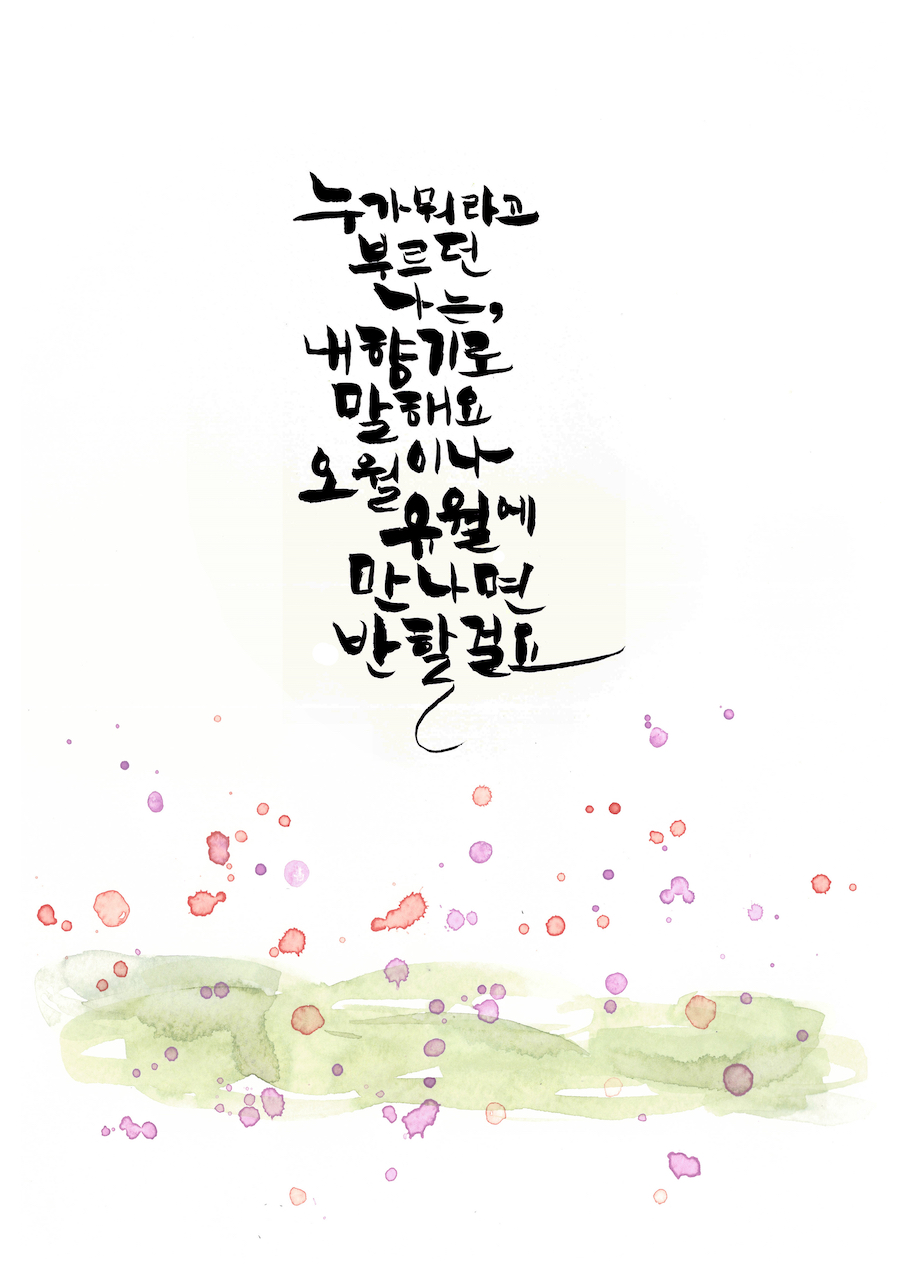 누가뭐라고
부르던
나는,
내향기로
말해요
오월이나
유월에
만나면
반할걸요